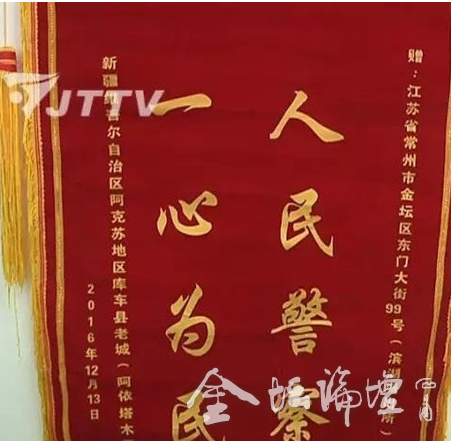 JTTV
赠：江苏省常州市金坛区东门大街99号（滨湖所）
人民警察
一心为民
新疆维吾尔自治区阿克苏地区库车县老城（阿依塔木
2016年12月13日
金坛論壇